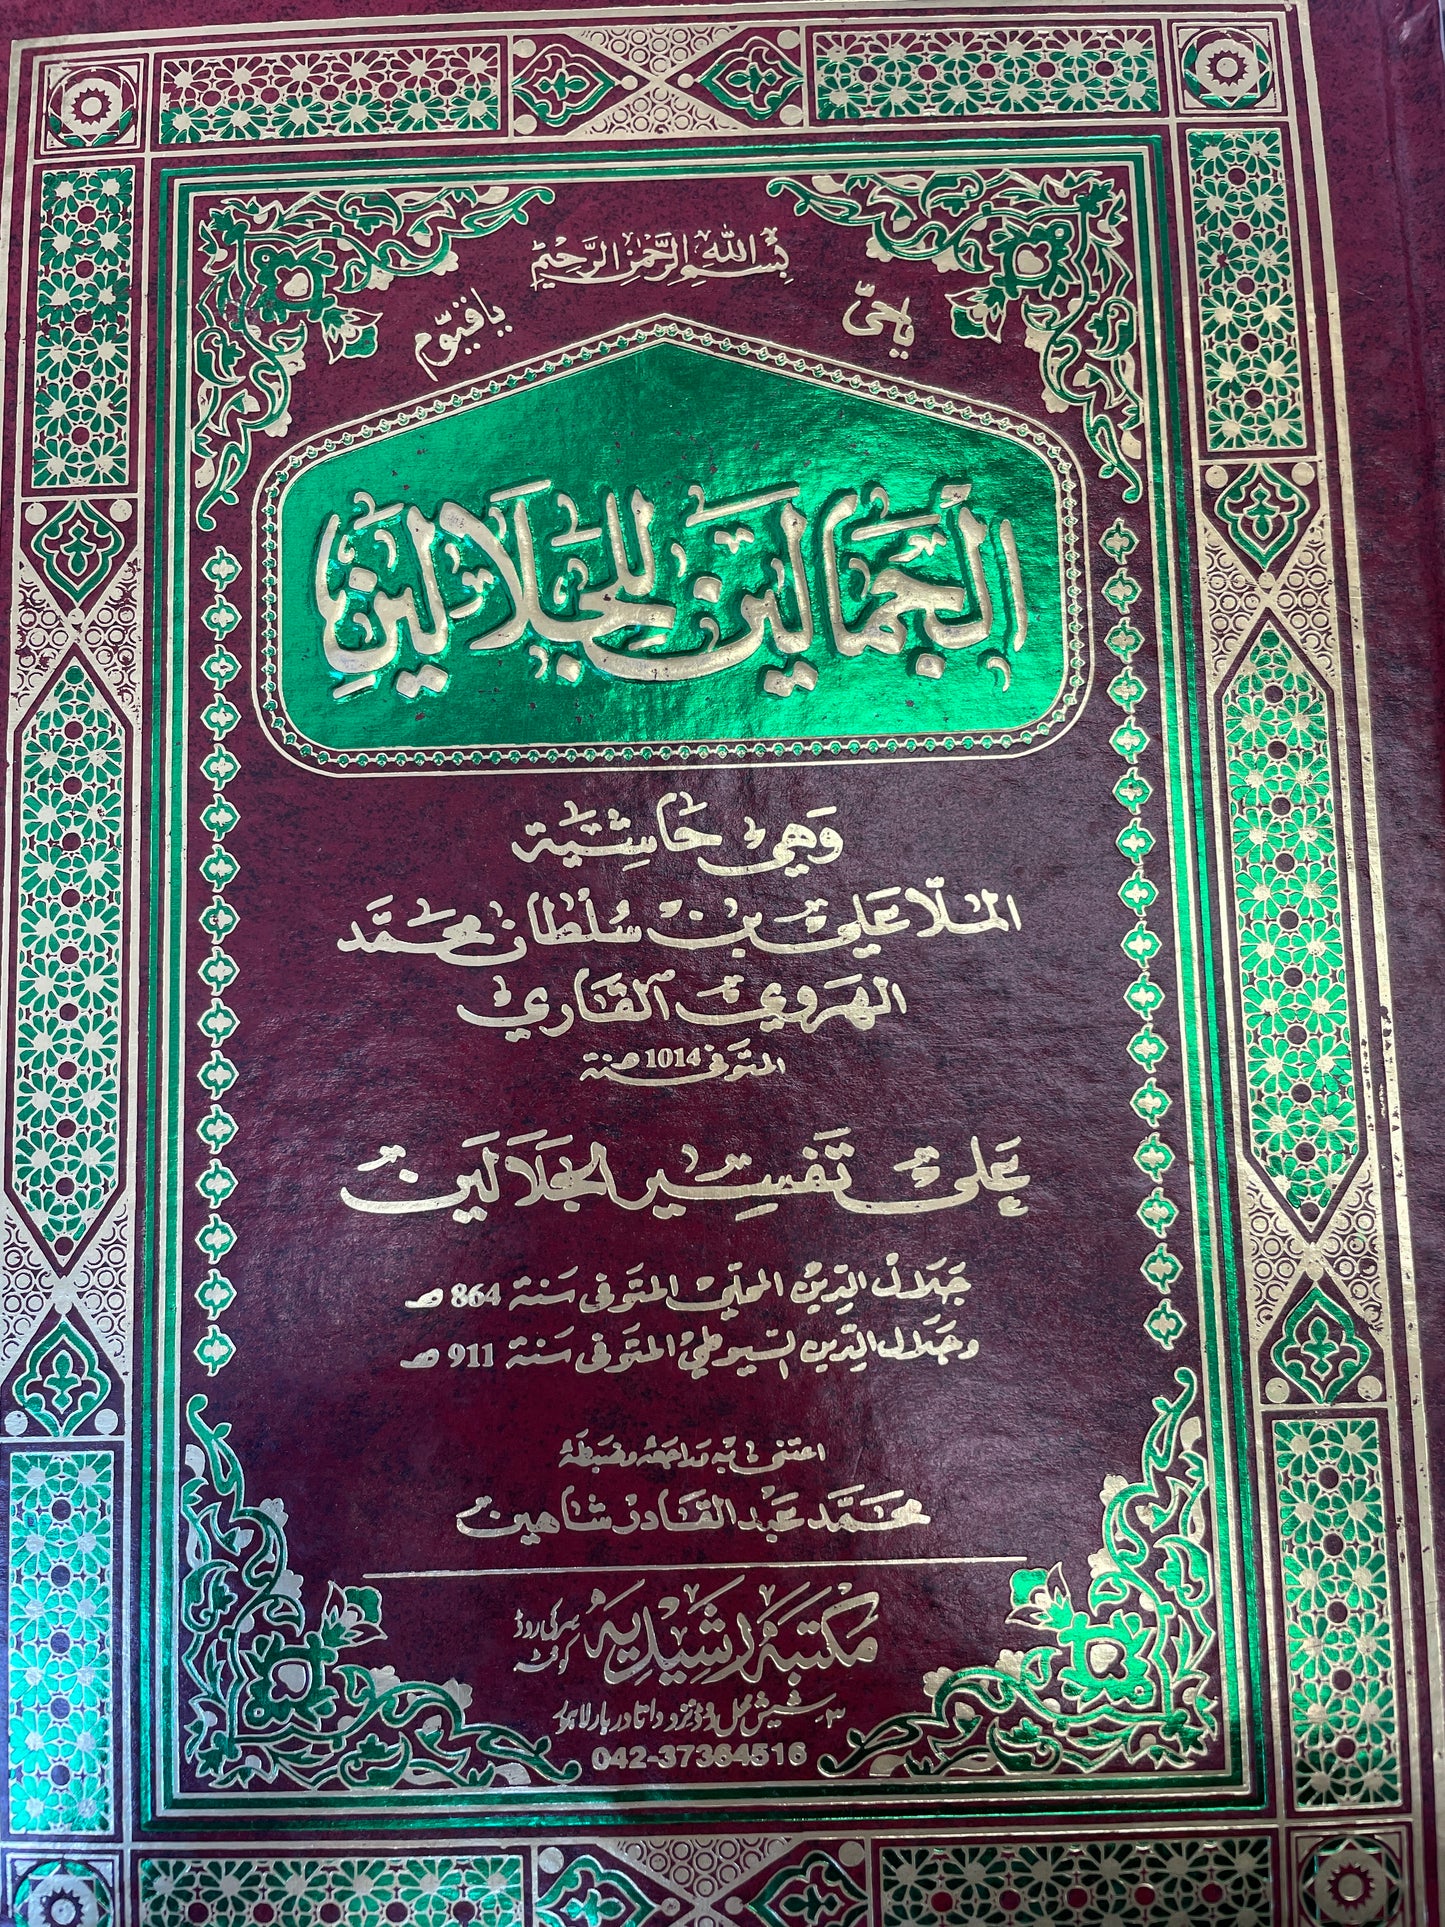 بِسْمِ اللهِ الرَّحْمٰنِ الرَّحِيْمِ
يا حَيُّ
يا قيّوم
الْجَمَالَيْنِ لِلْجَلَالَيْنِ
وَهِيَ حَاشِيَة
المُلّا عَلي بن سُلطان محمَّد
الهَرَوي القَاري
المتَوفى سَنة 1014 هـ
عَلى تَفسِير الجَلَالَين
جَلال الدِين المحلّي المتَوفى سَنة 864 هـ
وجَلال الدِّين السّيوطي المتَوفى سَنة 911 هـ
اعتنى به وَراجعَهُ وضَبطَهُ
محَمَّد عَبد القَادر شاهين
مکتبہ رشیدیہ
سرکی روڈ
کوئٹہ
داتا دربار لاہور
042-37364516